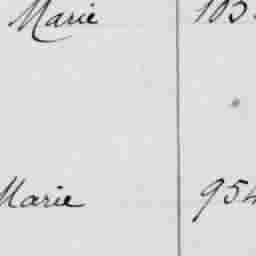 Marie 103
Marie 954